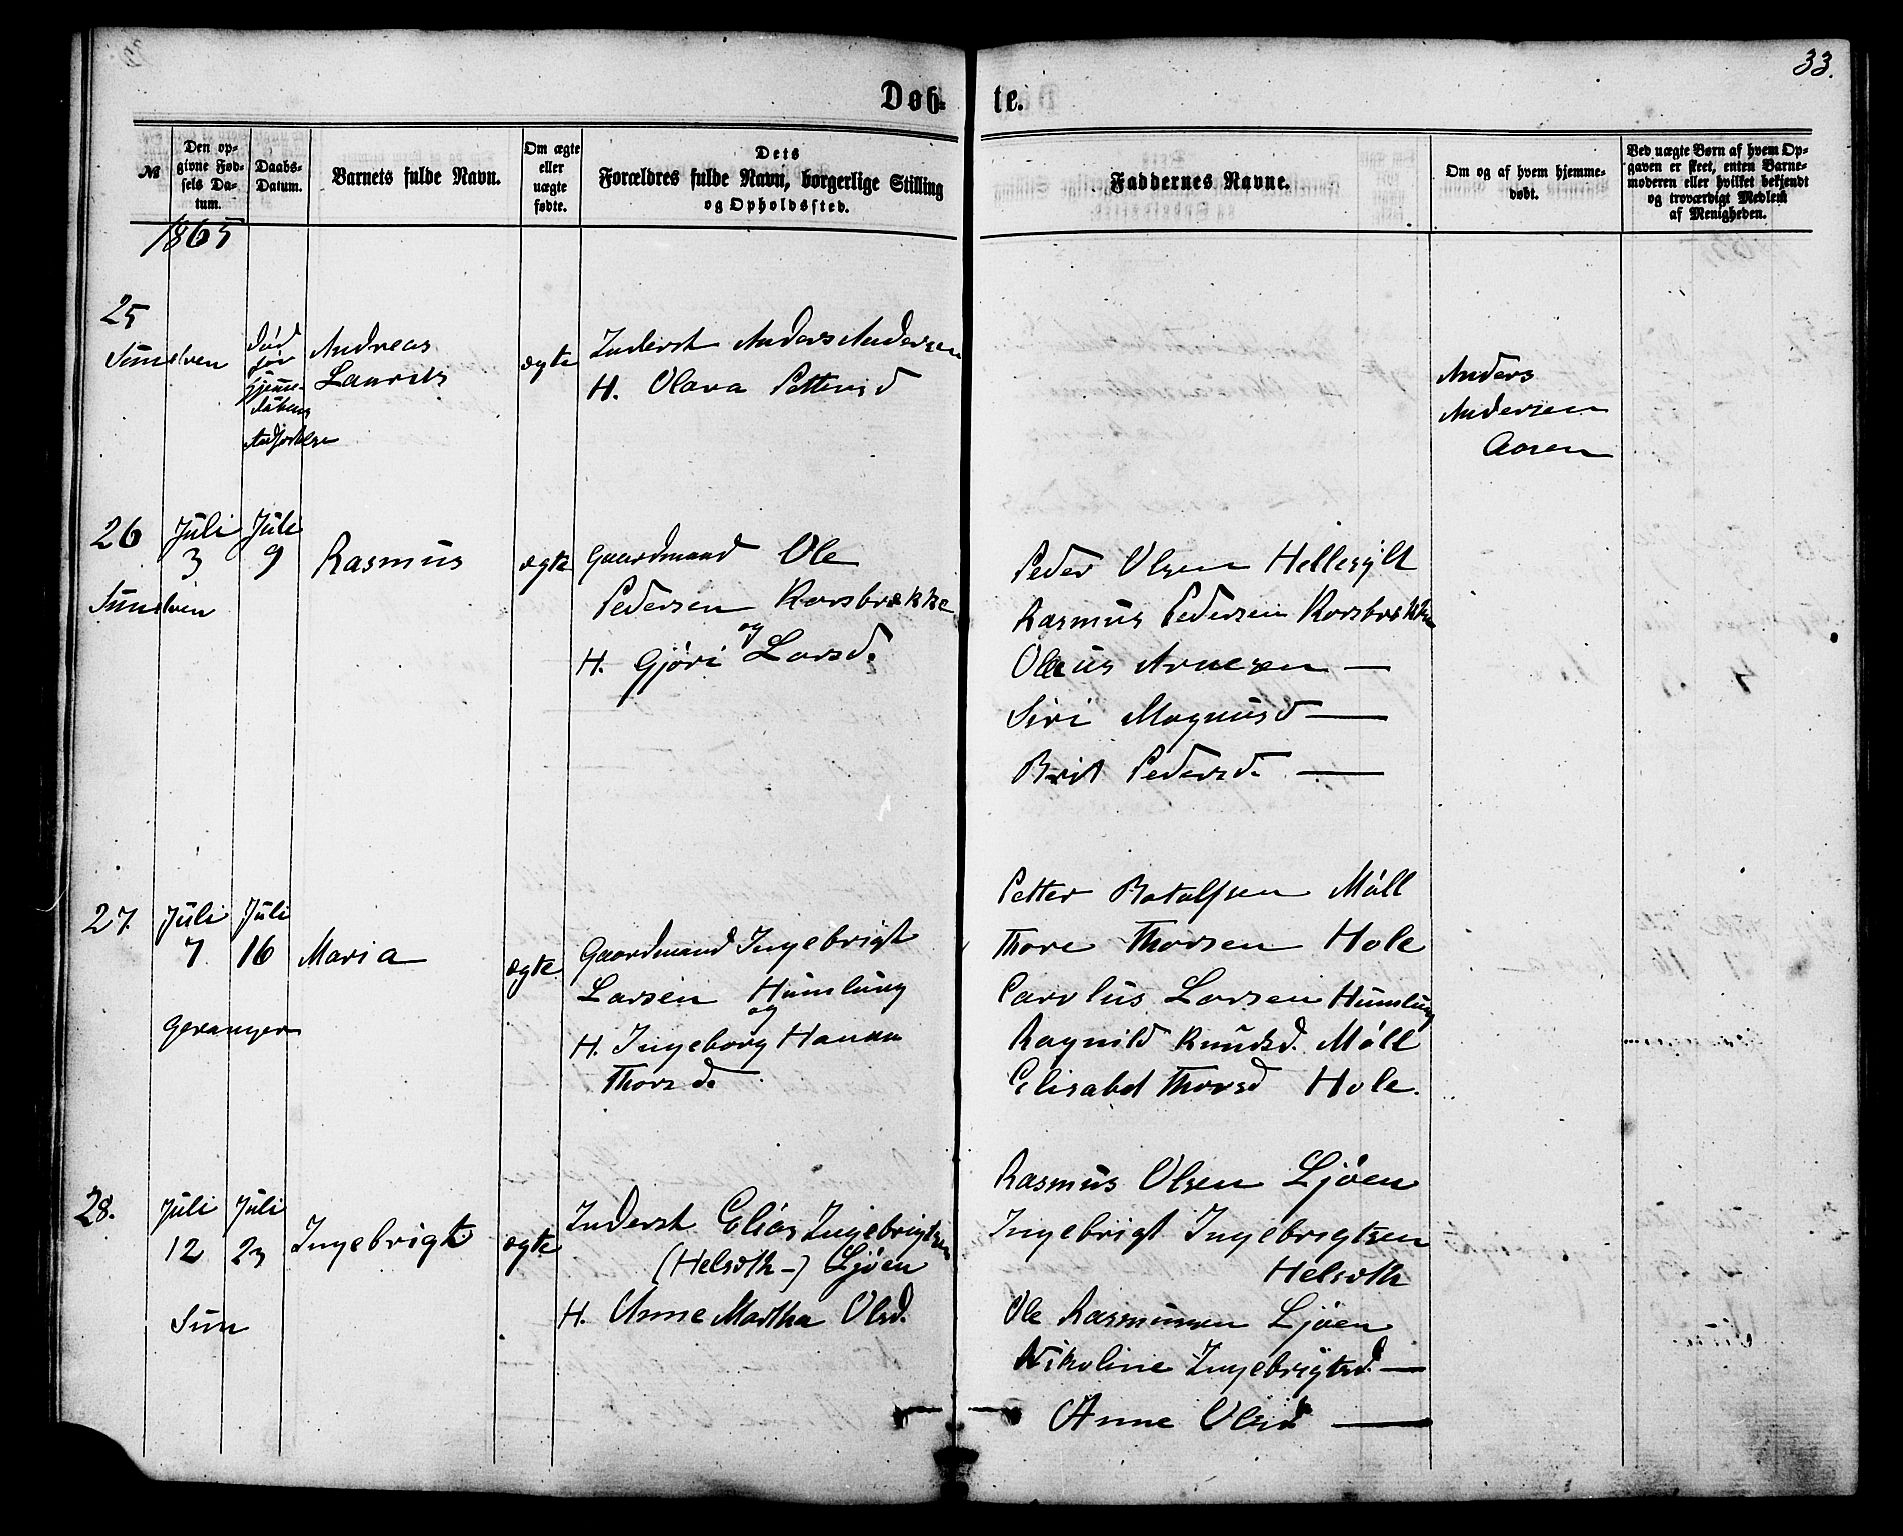 33.
Døb- te.
№
Den op-
givne Fød-
sels Da-
tum.
Daabs-
Datum.
Barnets fulde Navn.
Om ægte
eller
uægte
fødte.
Dets
Forældres fulde Navn, borgerlige Stilling
og Opholdssted.
Faddernes Navne.
Om og af hvem hjemme-
døbt.
Ved uægte Børn af hvem Op-
gaven er skeet, enten Barne-
moderen eller hvilket bekjendt
og troværdigt Medlem
af Menigheden.
1865
25
Sunelven
død
før
Hjemme-
daabens
Andreas
Laurits
ægte
Inderst Anders Andersen
H. Olava Pettersd
Anders
Andersen
Aasen
26
Sunelven
Juli
3
Juli
9
Rasmus
ægte
Gaardmand Ole
Pedersen Korsbrække
og
H. Gjøri Larsd.
Peder Olsen Hellesylt
Rasmus Pedersen Korsbrække
Olaus Arnesen —
Siri Magnusd —
Brit Pedersd. —
27.
Juli
7
Juli
16
Geranger
Maria
ægte
Gaardmand Ingebrigt
Larsen Humlung
og
H. Ingeborg Hanna
Thorsd.
Petter Botolfsen Møll
Thore Thorsen Hole
Carolus Larsen Humlung
Ragnild Knudsd. Møll
Elisabet Thorsd Hole.
28.
Juli
12
Juli
23
Sun
Ingebrigt
ægte
Inderst Elias Ingebrigtsen
(Helsoth-) Ljøen
H. Anne Martha Olsd.
Rasmus Olsen Ljøen
Ingebrigt Ingebrigtsen
Helsoth
Ole Rasmussen Ljøen
Nikoline Ingebrigtsd. —
Anne Olsd —